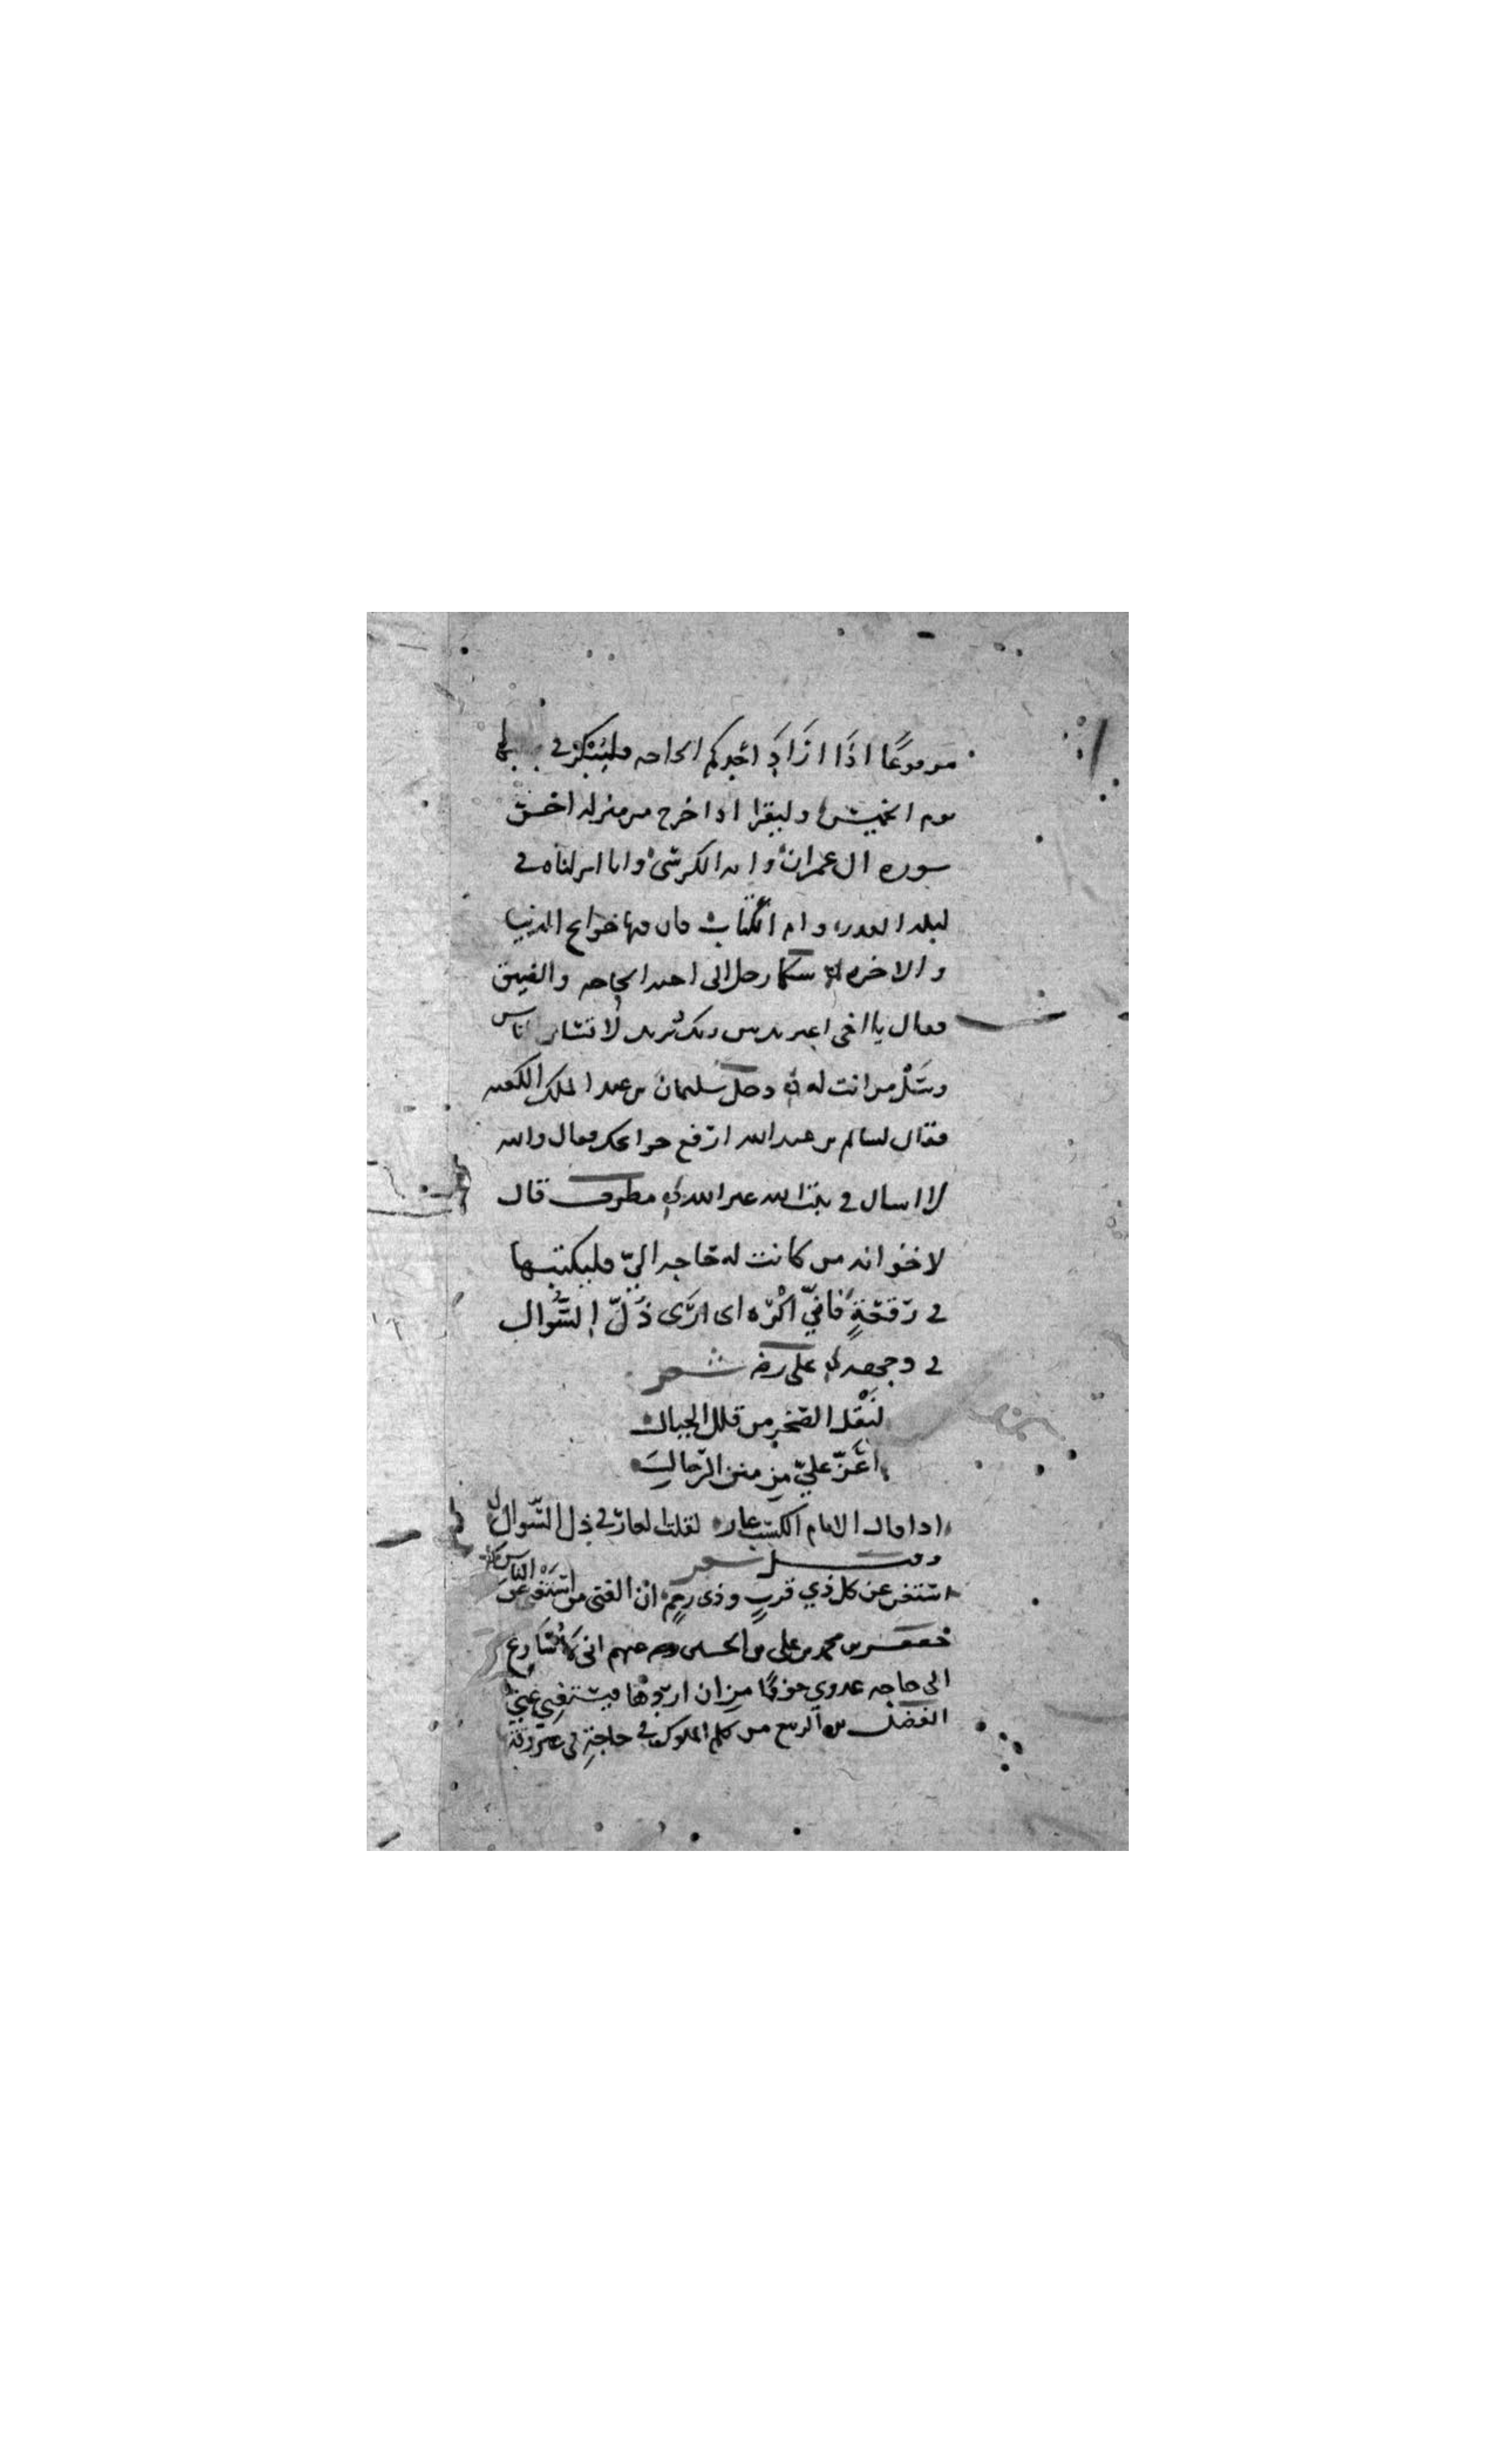 مرفوعًا اذَا ارَادَ احَدكم الحاجه فليُبَكِّر في
يوم الخميس وليقرا اذا خرج من منزله اخر
سورة ال عمران واية الكرسي وانا انزلناه في
ليلة القدر وام الكتاب فان فيها حوائج الدنيا
والاخره شكا رجل الى احيه الحاجه والضيق
فقال يا اخى اغير تدبير ربك تريد لا تسال الناس
وسَلْ من انت له دخل سليمان بن عبد الملك الكعبه
فقال لسالم بن عبد الله ارفع حوائجك فقال والله
لا اسال في بيت الله غير الله مطرف قال
لاخوانه من كانت له حاجه اليّ فليكتبها
في رقعةٍ فانيّ اكره ان ارَى ذُلّ السُّوال
في وجهه على رضه شعر
لنَقْل الصخر من قلل الجبال
اعَزّ عليّ مِن منن الرجال
اذا قال الانام الكسب عار لقلت العار في ذل السّوال
وقيل شعر
استغن عن كل ذي قربٍ وذى رحمٍ ان الغنى من استَغنى عن الناس
جعفر بن محمد بن على بن الحسين رضه عنهم انى لاُسَارع
الى حاجه عدوي خوفًا مِن ان اردّها فيستغني عنّي
الفضل بن الربيع من كلم الملوك في حاجةٍ في غير وقته